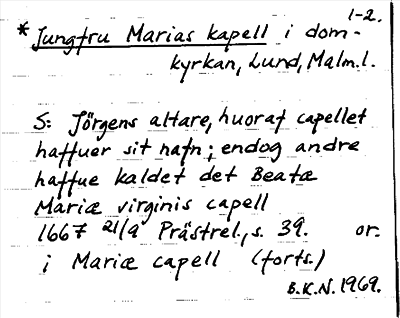 1-2.
*Jungfru Marias kapell i dom-
kyrkan, Lund, Malm.l.
S: Jörgens altare, huoraf capellet
haffuer sit nafn; endog andre
haffue kaldet det Beatæ
Mariæ virginis capell
1667 21/9 Prästrel., s. 39. or.
i Mariæ capell (forts.)
B.K.N. 1969.